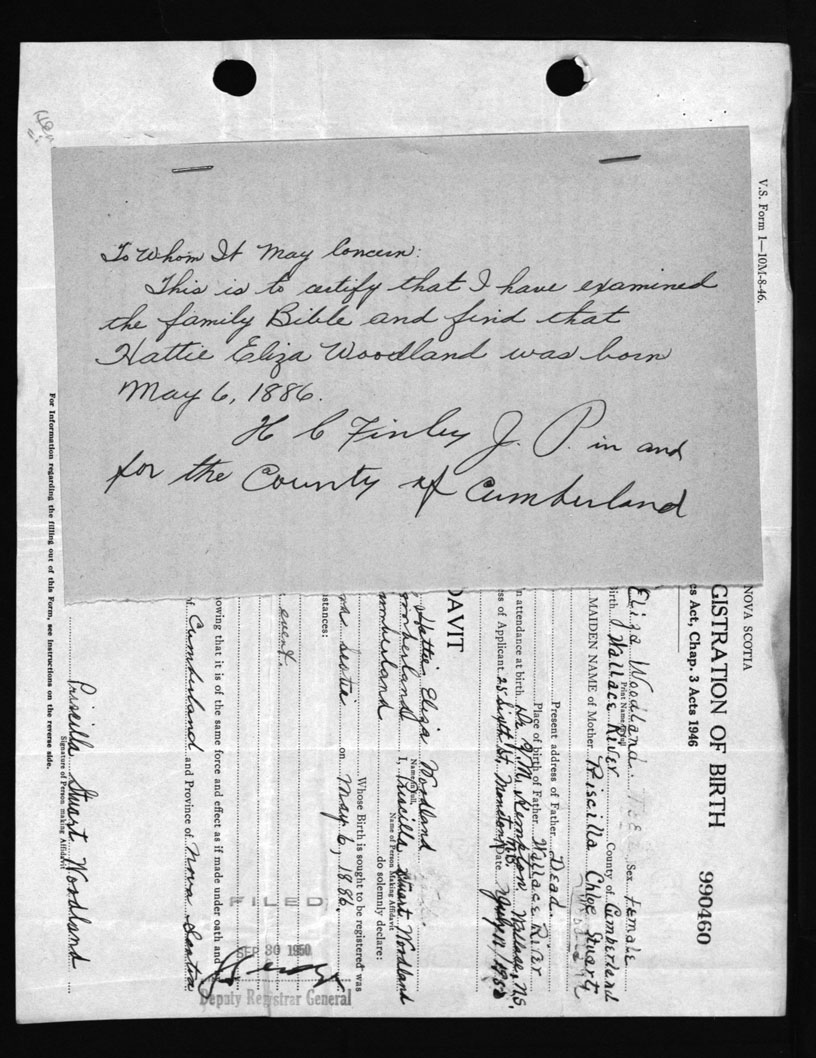 To Whom It May Concern:
This is to certify that I have examined
the family Bible and find that
Hattie Eliza Woodland was born
May 6, 1886.
H C Finley J. P. in and
for the County of Cumberland
V.S. Form 1—10M-8-46.
NOVA SCOTIA
GISTRATION OF BIRTH
990460
cs Act, Chap. 3 Acts 1946
Eliza Woodland. Sex Female
Print Name in full
Birth Wallace River County of Cumberland
MAIDEN NAME of Mother Priscilla Chloe Stuart
Present address of Father Dead.
Place of birth of Father Wallace River
n attendance at birth Dr. Wallace, N.S.
ss of Applicant 25 St, Moncton, N.B. Date
DAVIT
Hattie Eliza Woodland
Name in full
umberland I, Priscilla Stuart Woodland
Name of Person Making Affidavit
umberland do solemnly declare:
Whose Birth is sought to be registered was
on May 6, 1886.
stances:
event.
FILED
SEP 30 1950
Deputy Registrar General
owing that it is of the same force and effect as if made under oath and
of Cumberland and Province of Nova Scotia
Priscilla Stuart Woodland
Signature of Person making Affidavit
For Information regarding the filling out of this Form, see instructions on the reverse side.